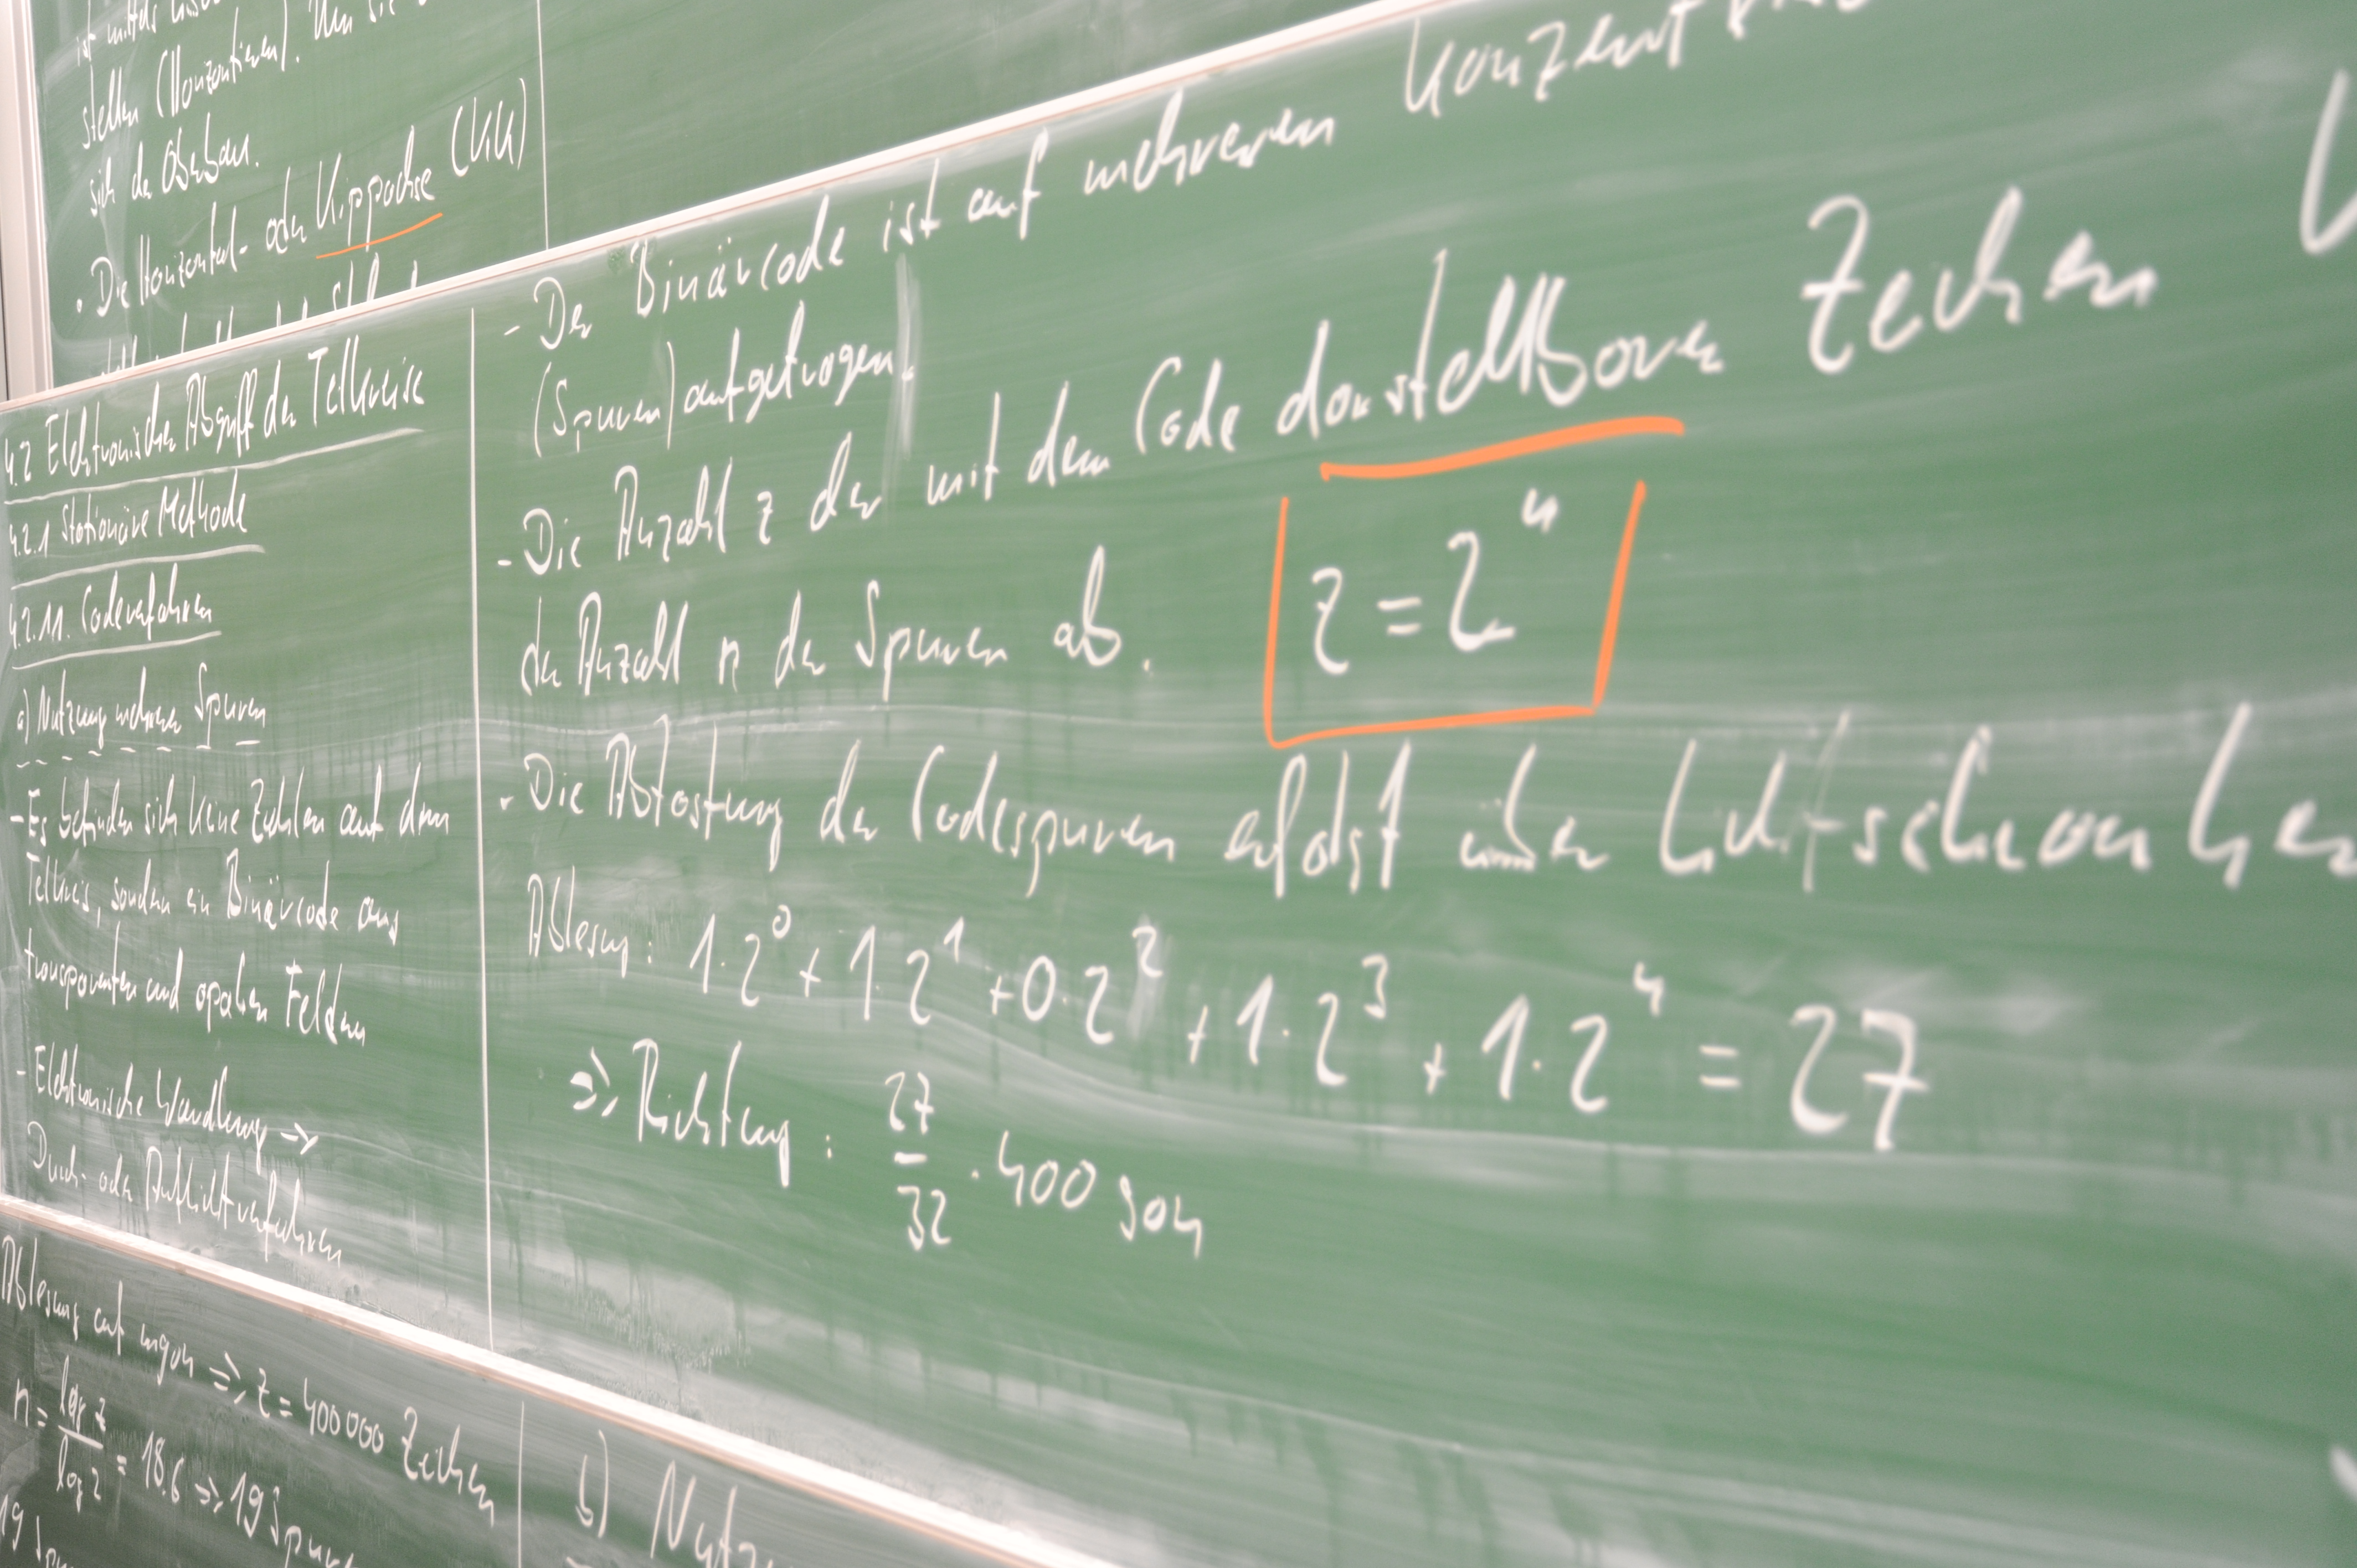 ist mittels
stellen (Horizontieren). Um sie
sich der Oberbau.
• Die Horizontal- oder Kippachse (KK)
4.2 Elektronischer Abgriff der Teilkreise
4.2.1 Stationäre Methode
4.2.11. Codeverfahren
a) Nutzung mehrerer Spuren
- Es befinden sich keine Zahlen auf dem
Teilkreis, sondern ein Binärcode aus
transparenten und opaken Feldern
- Elektronische Wandlung →
Durch- oder Auflichtverfahren
- Der Binärcode ist auf mehreren
(Spuren) aufgetragen.
- Die Anzahl z der mit dem Code darstellbaren Zeichen
der Anzahl n der Spuren ab. z = 2ⁿ
- Die Abtastung der Codespuren erfolgt über Lichtschranken
Ablesung: 1·2⁰ + 1·2¹ + 0·2² + 1·2³ + 1·2⁴ = 27
⇒ Richtung: 27/32 · 400 gon
Ablesung auf mgon ⇒ z = 400 000 Zeichen
n = log z / log 2 = 18.6 ⇒ 19 Spuren
19
b)